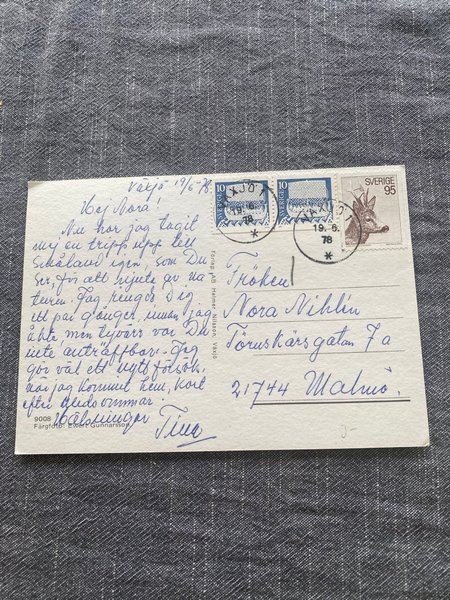 Växjö 19/6-78
Hej Nora!
Nu har jag tagit
mej en tripp upp till
Småland igen, som Du
ser, för att njuta av na-
turen. Jag ringde Dig
ett par gånger, innan jag
åkte, men tyvärr var Du
inte anträffbar. Jag
gör väl ett nytt försök
när jag kommit hem, kort
efter midsommar.
Hälsningar
Tina
9008
Färgfoto: Evert Gunnarsson
Förlag AB Helmer Nilsson, Växjö
SVERIGE 10
SVERIGE 10
SVERIGE
95
VÄXJÖ 1
19. 6.
78
VÄXJÖ 1
19. 6.
78
Fröken
Nora Nihlin
Töruskärsgatan 7a
21744 Malmö.